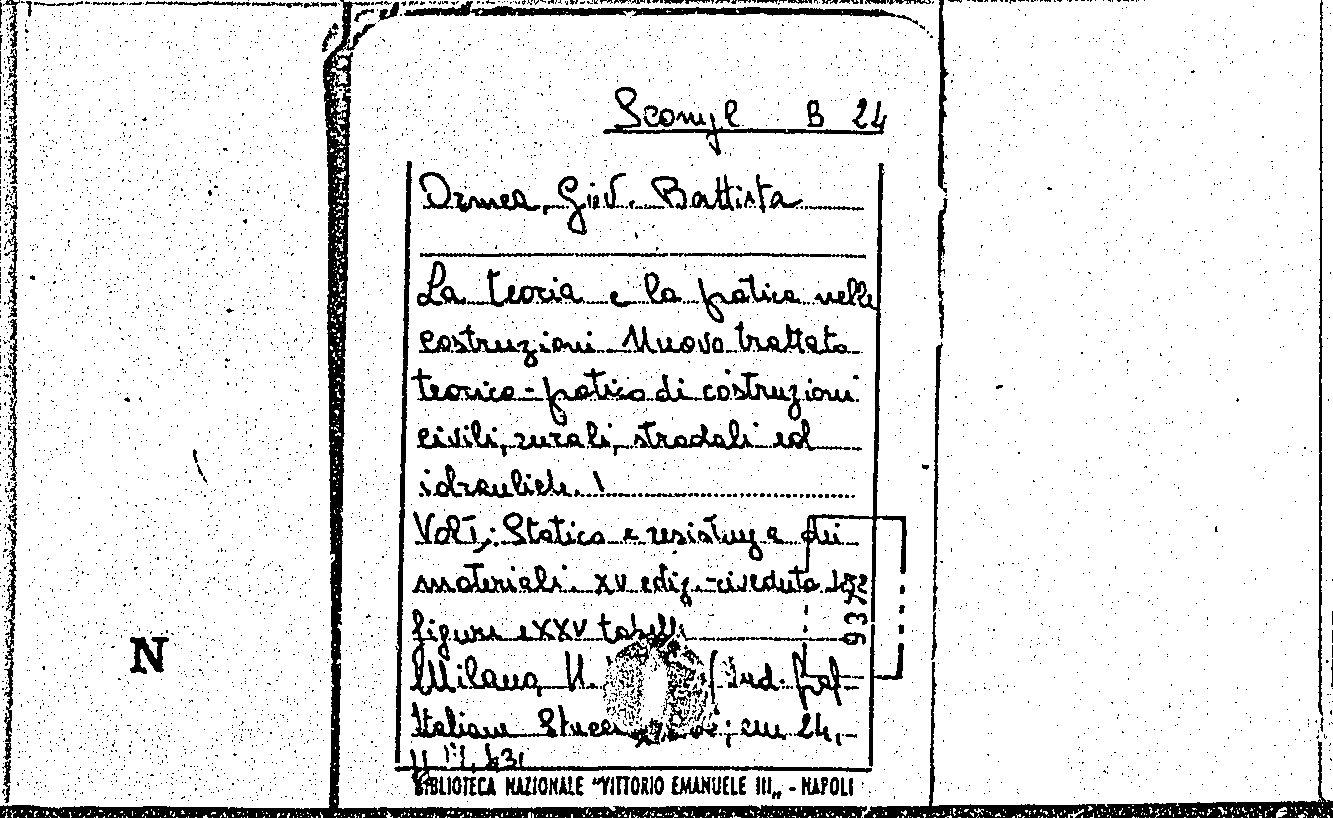 B 24
Ormea, Giov. Battista
La teoria e la pratica nelle
costruzioni. Nuovo trattato
teorico-pratico di costruzioni
civili, rurali, stradali ed
idrauliche.
Vol I,: Statica e resistenza dei
materiali. XV ediz. riveduta 152
figure e XXV tabelle
Milano, U.
Italiane cm 24,
9372
N
BIBLIOTECA NAZIONALE "VITTORIO EMANUELE III„ - NAPOLI